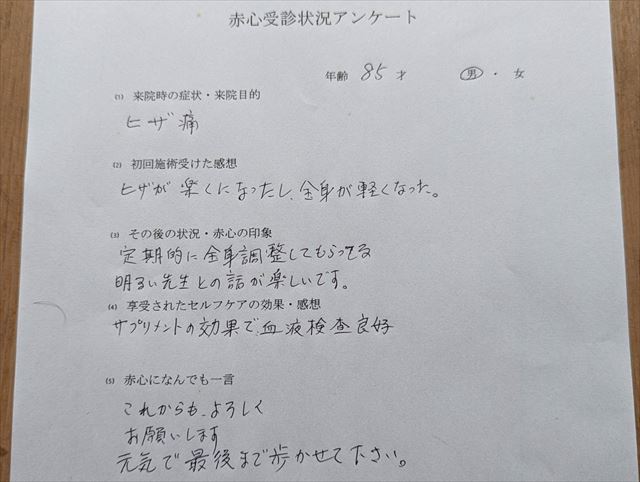 赤心受診状況アンケート
年齢 85 才 男 ・ 女
(1) 来院時の症状・来院目的
ヒザ痛
(2) 初回施術受けた感想
ヒザが楽くになったし、全身が軽くなった。
(3) その後の状況・赤心の印象
定期的に全身調整してもらってる
明るい先生との話が楽しいです。
(4) 享受されたセルフケアの効果・感想
サプリメントの効果で、血液検査良好
(5) 赤心になんでも一言
これからも、よろしく
お願いします
元気で最後まで歩かせて下さい。